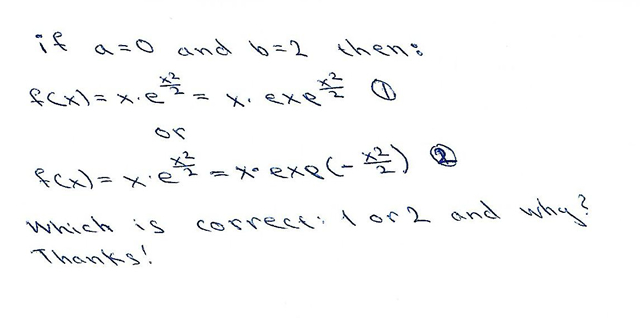 if a=0 and b=2 then:
f(x)= x·e^(x²/2) = x· exp^(x²/2) ①
or
f(x)= x·e^(x²/2) = x· exp(-x²/2) ②
Which is correct: 1 or 2 and why?
Thanks!